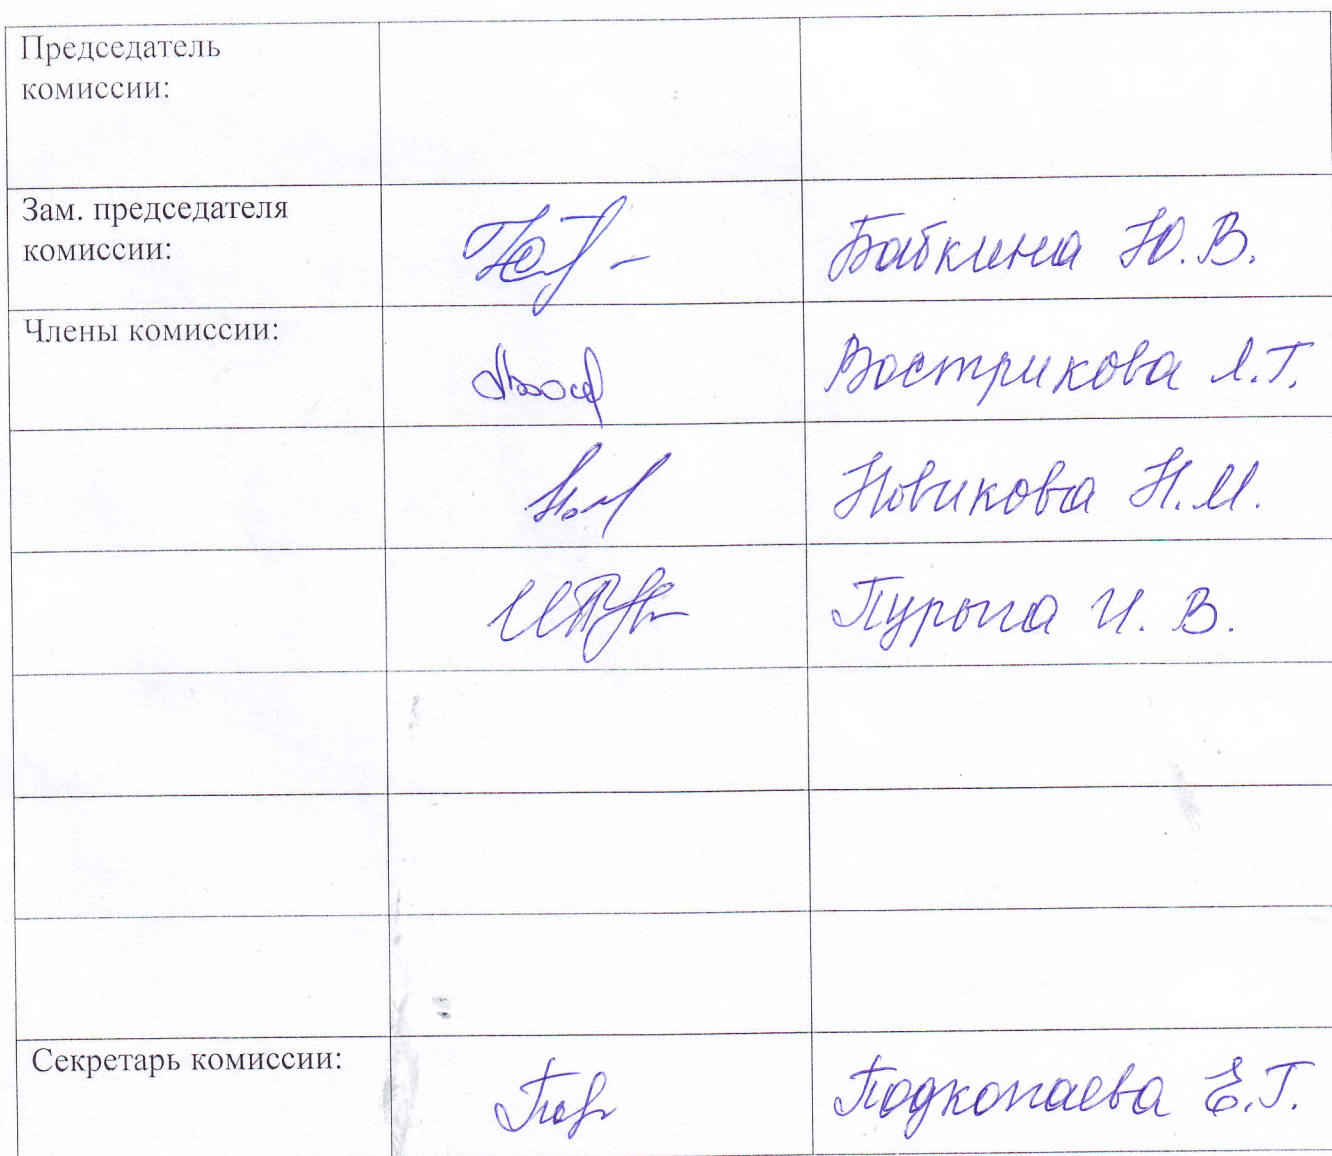 Председатель
комиссии:
Зам. председателя
комиссии:
Бабкина Ю.В.
Члены комиссии:
Вострикова Л.Г.
Новикова Н.М.
Пурыга И.В.
Секретарь комиссии:
Подкопаева Е.Г.